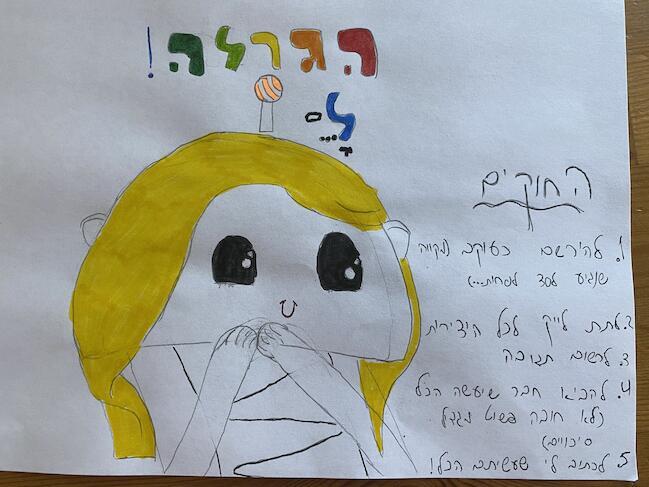 הגרלה!
ל-...
החוקים
1. להירשם כעוקב (נקווה
שנגיע ל30 לפחות...)
2. לתת לייק לכל היצירות
3. לרשום תגובה
4. להביא חבר שיעשה הכל
(לא חובה פשוט מגדל
סיכויים)
5. לכתוב לי שעשיתם הכל!